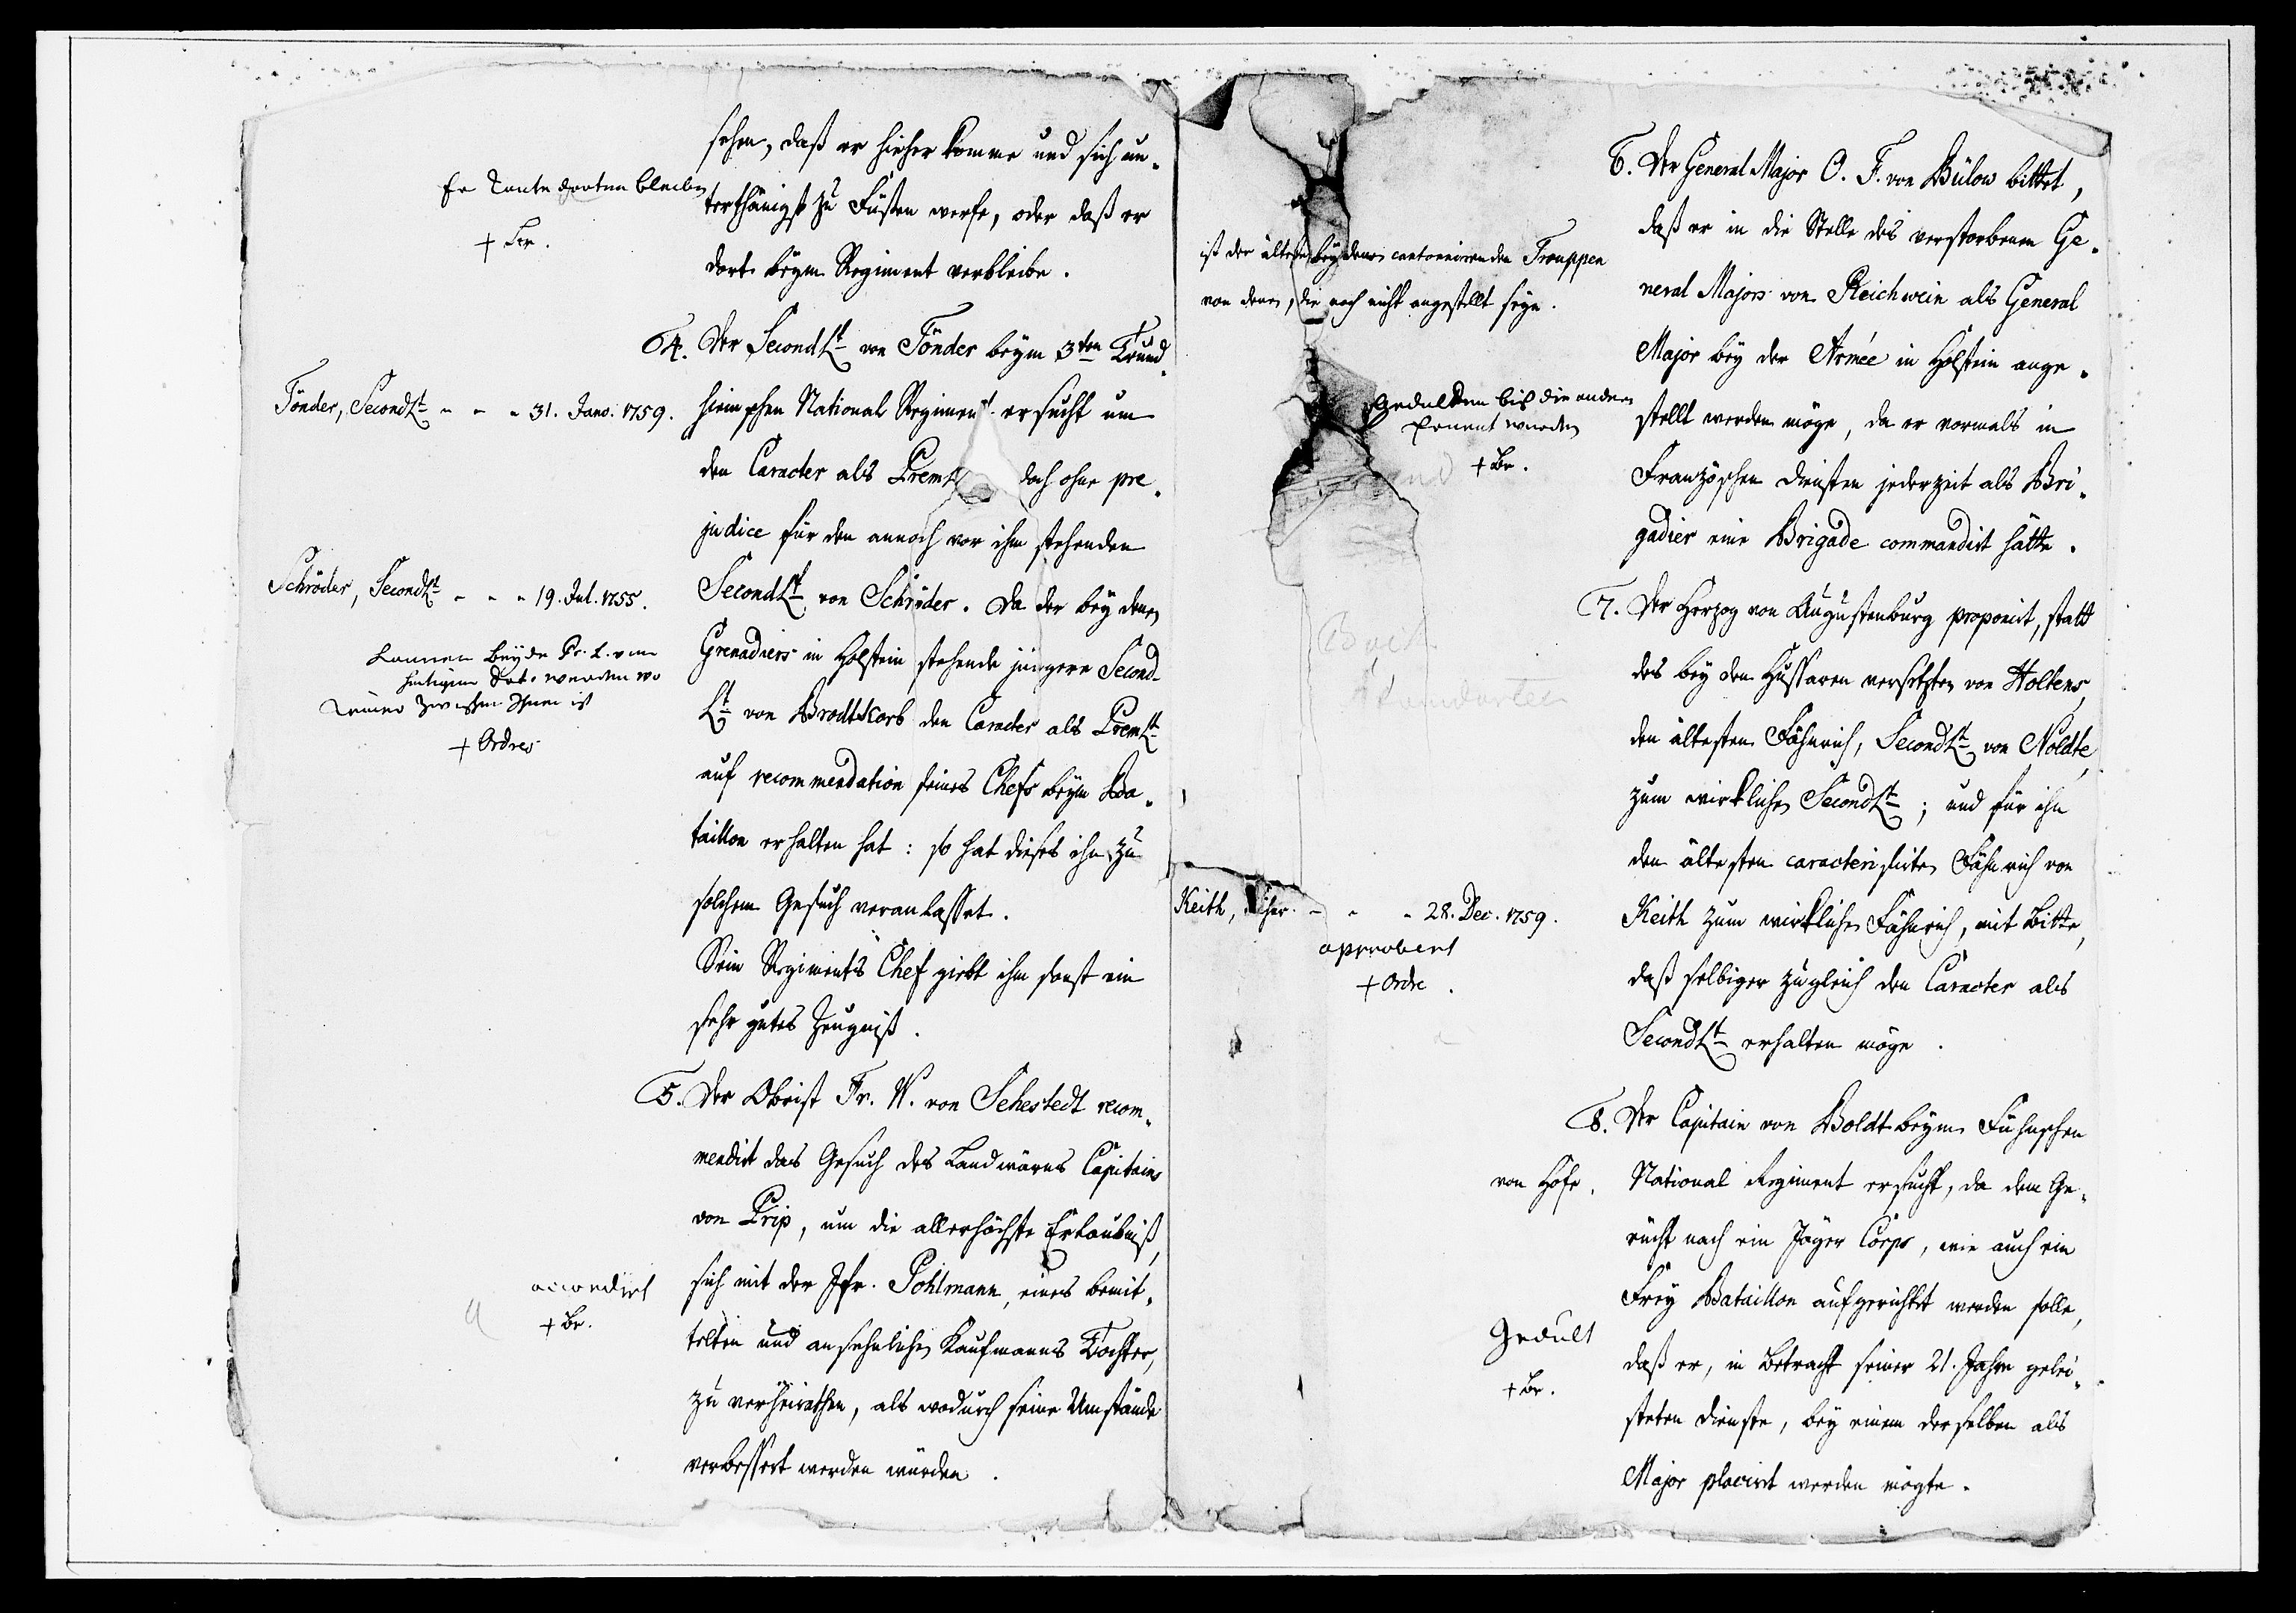 sehen, daß er hieher komme und sich un-
terthänigst zu Füßen werfe, oder daß er
dort beym Regiment verbleibe.
Er konte dorten bleiben
+ Br.
4. Der SecondLt von Tönder beym 3ten Trund-
hiemschen National Regiment ersucht um
den Caracter als PremLt doch ohne pre-
judice für den annoch vor ihm stehenden
SecondLt von Schröder. Da der bey denen
Grenadiers in Holstein stehende jüngere Second-
Lt von Brodtkorb den Caracter als PremLt
auf recommendation seines Chefs beym Ba-
taillon erhalten hat: so hat dieses ihn zu
solchem Gesuch veranlasset.
Sein Regiments Chef giebt ihm sonst ein
sehr gutes Zeugniß.
Tönder, SecondLt - - - 31. Janv. 1759.
Schröder, SecondLt - - - 19. Jul. 1755.
konnen beyde Pr. L. vom
heutigen Dato werden wo
keiner zwischen Ihnen ist
+ Ordres
5. Der Obrist Fr. W. von Sehestedt recom-
mendirt das Gesuch des Landwärns Capitains
von Prip, um die allerhöchste Erlaubniß,
sich mit der Jfr. Pohlmann, eines bemit-
telten und ansehnlichen Kaufmanns Tochter,
zu verheirathen, als wodurch seine Umstände
verbessert werden würden.
accordirt
+ Br.
6. Der General Major O. F. von Bülow bittet,
daß er in die Stelle des verstorbenen Ge-
neral Majors von Reichwein als General
Major bey der Armée in Holstein ange-
stellt werden möge, da er vormals in
Französchen Diensten jederzeit als Bri-
gadier eine Brigade commandirt hätte.
ist der älteste bey denen cantonnirenden Trouppen
von denen, die noch nicht angestellt seyn.
gedulden bis die andern
ernent werden
+ Br.
7. Der Herzog von Augustenburg proponirt, statt
des bey den Hussaren versetzten von Holtens,
den ältesten Fähnrich, SecondLt von Noldte,
zum wirklichen SecondLt; und für ihn
den ältesten caracterisirten Fähnrich von
Keith zum wirklichen Fähnrich, mit Bitte,
daß selbiger zugleich den Caracter als
SecondLt erhalten möge.
Keith, - - - 28. Dec. 1759.
approbert
+ Ordre.
8. Der Capitain von Boldt beym Fühnschen
National Regiment ersucht, da dem Ge-
rücht nach ein Jäger Corps, wie auch ein
Frey Bataillon aufgerichtet werden solle,
daß er, in Betracht seiner 21. Jahre gelei-
steten Dienste, bey einem derselben als
Major placirt werden mögte.
von Hofe.
Gedult
+ Br.